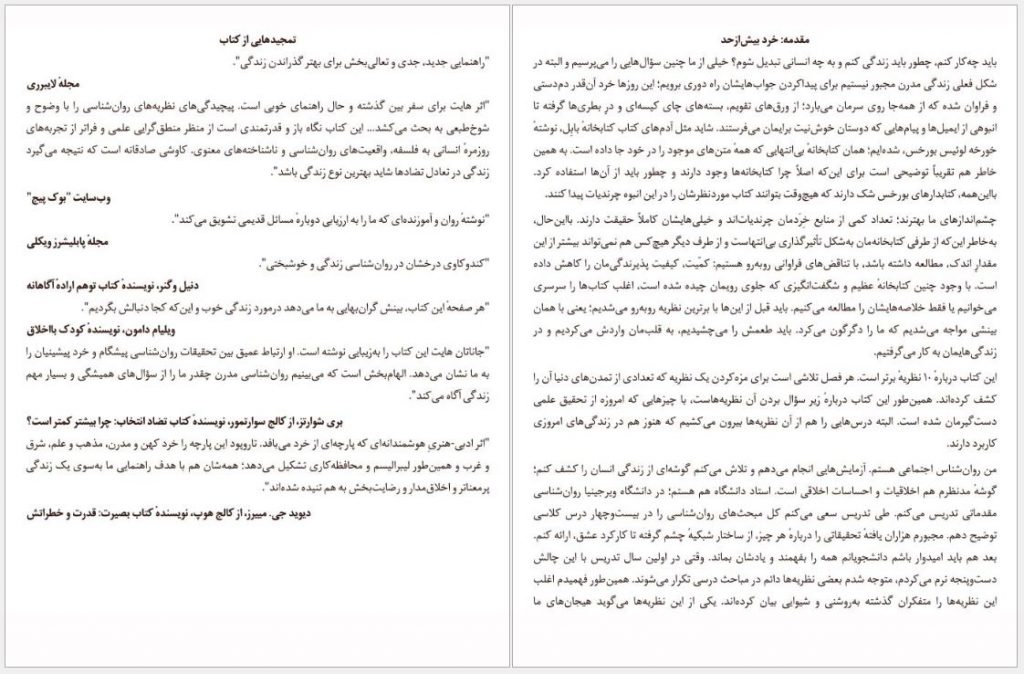 مقدمه: خرد بیش‌ازحد
باید چه‌کار کنم، چطور باید زندگی کنم و به چه انسانی تبدیل شوم؟ خیلی از ما چنین سؤال‌هایی را می‌پرسیم و البته در
شکل فعلی زندگی مدرن مجبور نیستیم برای پیداکردن جواب‌هایشان راه دوری برویم؛ این روزها خرد آن‌قدر دم‌دستی
و فراوان شده که از همه‌جا روی سرمان می‌بارد؛ از ورق‌های تقویم، بسته‌های چای کیسه‌ای و درِ بطری‌ها گرفته تا
انبوهی از ایمیل‌ها و پیام‌هایی که دوستان خوش‌نیت برایمان می‌فرستند. شاید مثل آدم‌های کتاب کتابخانهٔ بابِل، نوشتهٔ
خورخه لوئیس بورخس، شده‌ایم؛ همان کتابخانهٔ بی‌انتهایی که همهٔ متن‌های موجود را در خود جا داده است. به همین
خاطر هم تقریباً توضیحی است برای این‌که اصلاً چرا کتابخانه‌ها وجود دارند و چطور باید از آن‌ها استفاده کرد.
بااین‌همه، کتابدارهای بورخس شک دارند که هیچ‌وقت بتوانند کتاب موردنظرشان را در این انبوه چرندیات پیدا کنند.
چشم‌اندازهای ما بهترند؛ تعداد کمی از منابع خِرَدمان چرندیات‌اند و خیلی‌هایشان کاملاً حقیقت دارند. بااین‌حال،
به‌خاطر این‌که از طرفی کتابخانه‌مان به‌شکل تأثیرگذاری بی‌انتهاست و از طرف دیگر هیچ‌کس هم نمی‌تواند بیشتر از این
مقدارِ اندک، مطالعه داشته باشد، با تناقض‌های فراوانی روبه‌رو هستیم: کمّیت، کیفیت پذیرندگی‌مان را کاهش داده
است. با وجود چنین کتابخانهٔ عظیم و شگفت‌انگیزی که جلوی رویمان چیده شده است، اغلب کتاب‌ها را سرسری
می‌خوانیم یا فقط خلاصه‌هایشان را مطالعه می‌کنیم. باید قبل از این‌ها با برترین نظریه روبه‌رو می‌شدیم؛ یعنی با همان
بینشی مواجه می‌شدیم که ما را دگرگون می‌کرد. باید طعمش را می‌چشیدیم، به قلب‌مان واردش می‌کردیم و در
زندگی‌هایمان به کار می‌گرفتیم.
این کتاب دربارهٔ ۱۰ نظریهٔ برتر است. هر فصل تلاشی است برای مزه‌کردن یک نظریه که تعدادی از تمدن‌های دنیا آن را
کشف کرده‌اند. همین‌طور این کتاب دربارهٔ زیر سؤال بردن آن نظریه‌هاست، با چیزهایی که امروزه از تحقیق علمی
دست‌گیرمان شده است. البته درس‌هایی را هم از آن نظریه‌ها بیرون می‌کشیم که هنوز هم در زندگی‌های امروزی
کاربرد دارند.
من روان‌شناس اجتماعی هستم. آزمایش‌هایی انجام می‌دهم و تلاش می‌کنم گوشه‌ای از زندگی انسان را کشف کنم؛
گوشهٔ مدنظرم هم اخلاقیات و احساسات اخلاقی است. استاد دانشگاه هم هستم؛ در دانشگاه ویرجینیا روان‌شناسی
مقدماتی تدریس می‌کنم. طی تدریس سعی می‌کنم کل مبحث‌های روان‌شناسی را در بیست‌وچهار درس کلاسی
توضیح دهم. مجبورم هزاران یافتهٔ تحقیقاتی را دربارهٔ هر چیز، از ساختار شبکیهٔ چشم گرفته تا کارکرد عشق، ارائه کنم.
بعد هم باید امیدوار باشم دانشجویانم همه را بفهمند و یادشان بماند. وقتی در اولین سال تدریس با این چالش
دست‌وپنجه نرم می‌کردم، متوجه شدم بعضی نظریه‌ها دائم در مباحث درسی تکرار می‌شوند. همین‌طور فهمیدم اغلب
این نظریه‌ها را متفکران گذشته به‌روشنی و شیوایی بیان کرده‌اند. یکی از این نظریه‌ها می‌گوید هیجان‌های ما
تمجیدهایی از کتاب
"راهنمایی جدید، جدی و تعالی‌بخش برای بهتر گذراندن زندگی".
مجلهٔ لایبرری
"اثر هایت برای سفر بین گذشته و حال راهنمای خوبی است. پیچیدگی‌های نظریه‌های روان‌شناسی را با وضوح و
شوخ‌طبعی به بحث می‌کشد... این کتاب نگاه باز و قدرتمندی است از منظر منطق‌گرایی علمی و فراتر از تجربه‌های
روزمرهٔ انسانی به فلسفه، واقعیت‌های روان‌شناسی و ناشناخته‌های معنوی. کاوشی صادقانه است که نتیجه می‌گیرد
زندگی در تعادل تضادها شاید بهترین نوع زندگی باشد".
وب‌سایت "بوک پیج"
"نوشتهٔ روان و آموزنده‌ای که ما را به ارزیابی دوبارهٔ مسائل قدیمی تشویق می‌کند".
مجلهٔ پابلیشرز ویکلی
"کندوکاوی درخشان در روان‌شناسی زندگی و خوشبختی".
دنیل وگنر، نویسندهٔ کتاب توهم ارادهٔ آگاهانه
"هر صفحهٔ این کتاب، بینش گران‌بهایی به ما می‌دهد درمورد زندگی خوب و این‌که کجا دنبالش بگردیم".
ویلیام دامون، نویسندهٔ کودک بااخلاق
"جاناتان هایت این کتاب را به‌زیبایی نوشته است. او ارتباط عمیق بین تحقیقات روان‌شناسی پیشگام و خرد پیشینیان را
به ما نشان می‌دهد. الهام‌بخش است که می‌بینیم روان‌شناسی مدرن چقدر ما را از سؤال‌های همیشگی و بسیار مهم
زندگی آگاه می‌کند".
بری شوارتز، از کالج سوارتمور، نویسندهٔ کتاب تضاد انتخاب: چرا بیشتر کمتر است؟
"اثر ادبی-هنریِ هوشمندانه‌ای که پارچه‌ای از خرد می‌بافد. تاروپود این پارچه را خرد کهن و مدرن، مذهب و علم، شرق
و غرب و همین‌طور لیبرالیسم و محافظه‌کاری تشکیل می‌دهد؛ همه‌شان هم با هدف راهنمایی ما به‌سوی یک زندگی
پرمعناتر و اخلاق‌مدار و رضایت‌بخش به هم تنیده شده‌اند".
دیوید جی. مییرز، از کالج هوپ، نویسندهٔ کتاب بصیرت: قدرت و خطراتش